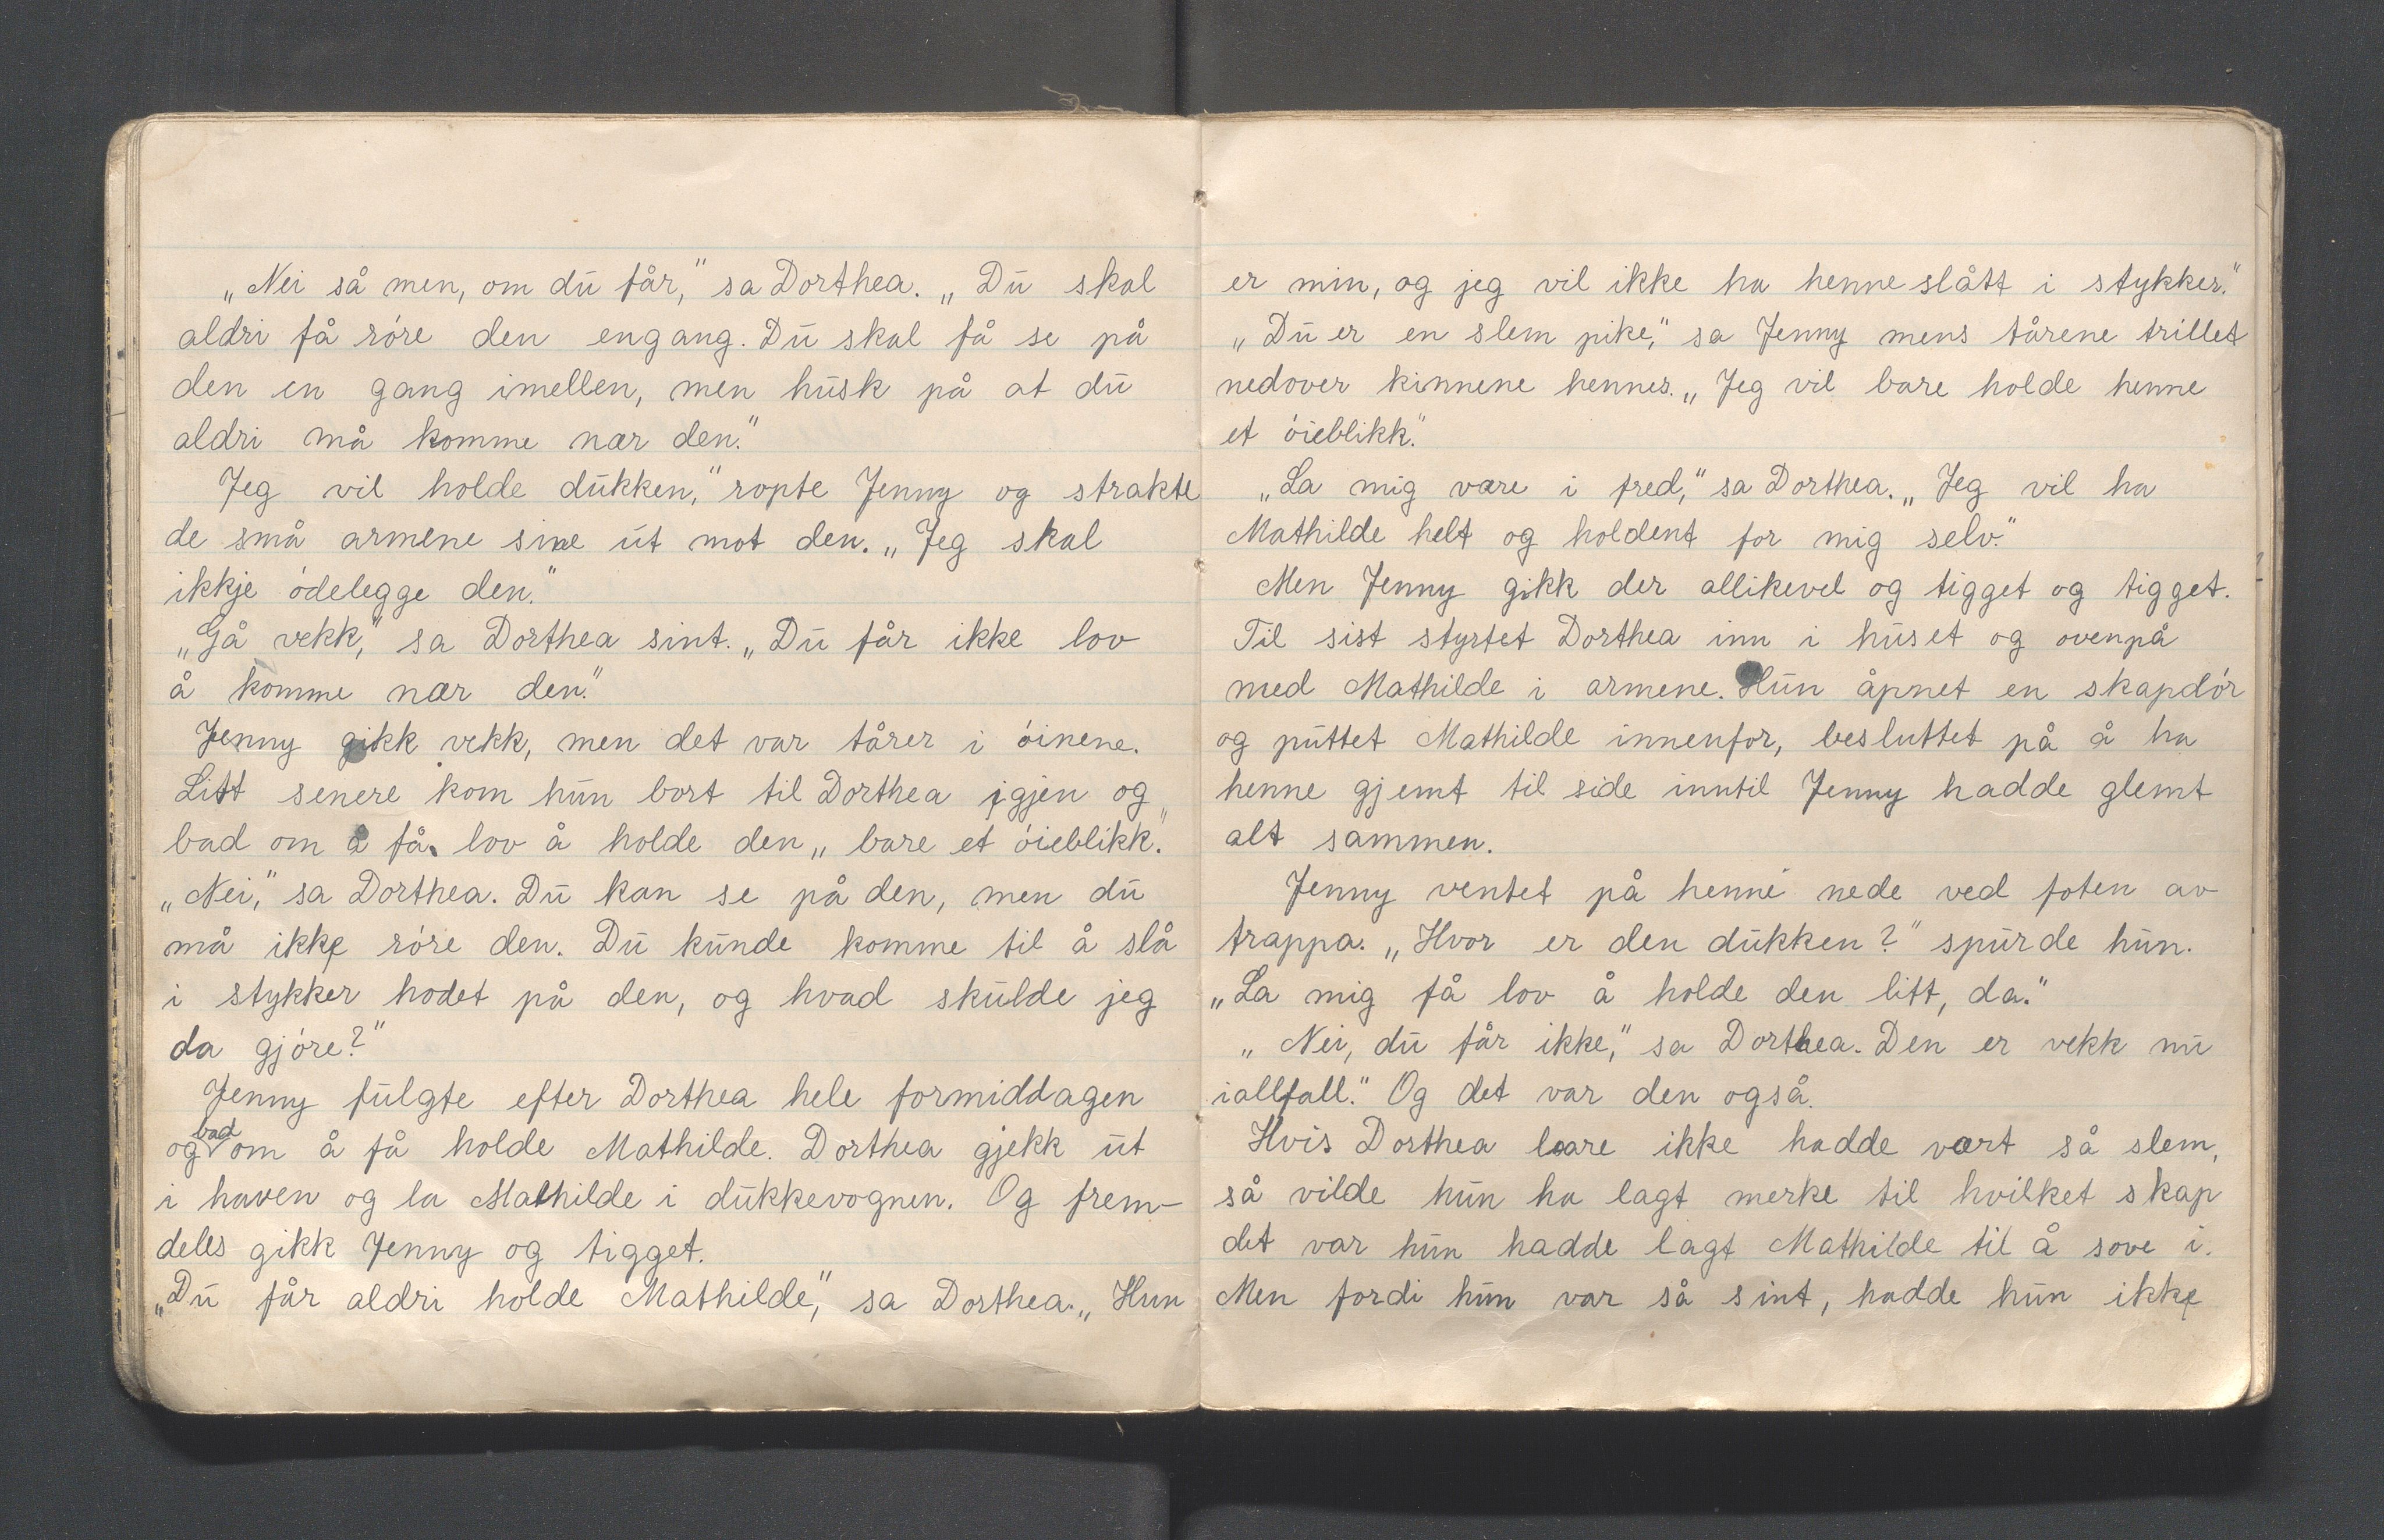 „Nei så men, om du får,” sa Dorthea. „Du skal
aldri få röre den engang. Du skal få se på
den en gang imellen, men husk på at du
aldri må komme nær den.”
Jeg vil holde dukken,” ropte Jenny og strakte
de små armene sine ut mot den. „Jeg skal
ikkje ödelegge den.”
„Gå vekk,” sa Dorthea sint. „Du får ikke lov
å komme nær den.”
Jenny gikk vekk, men det var tårer i öinene.
Litt senere kom hun bort til Dorthea igjen og
bad om å få lov å holde den „bare et öieblikk.”
„Nei,” sa Dorthea. Du kan se på den, men du
må ikke röre den. Du kunde komme til å slå
i stykker hodet på den, og hvad skulde jeg
da gjöre?”
Jenny fulgte efter Dorthea hele formiddagen
og bad om å få holde Mathilde. Dorthea gjekk ut
i haven og la Mathilde i dukkevognen. Og frem-
deles gikk Jenny og tigget.
„Du får aldri holde Mathilde,” sa Dorthea. „Hun
er min, og jeg vil ikke ha henne slått i stykker.”
„Du er en slem pike,” sa Jenny mens tårene trillet
nedover kinnene hennes. „Jeg vil bare holde henne
et öieblikk.”
„La mig være i fred,” sa Dorthea. „Jeg vil ha
Mathilde helt og holdent for mig selv.”
Men Jenny gikk der allikevel og tigget og tigget.
Til sist styrtet Dorthea inn i huset og ovenpå
med Mathilde i armene. Hun åpnet en skapdör
og puttet Mathilde innenfor, besluttet på å ha
henne gjemt til side inntil Jenny hadde glemt
alt sammen.
Jenny ventet på henne nede ved foten av
trappa. „Hvor er den dukken?” spurde hun.
„La mig få lov å holde den litt, da.”
„Nei, du får ikke,” sa Dorthea. Den er vekk nu
iallfall.” Og det var den også.
Hvis Dorthea bare ikke hadde vært så slem,
så vilde hun ha lagt merke til hvilket skap
det var hun hadde lagt Mathilde til å sove i.
Men fordi hun var så sint, hadde hun ikke